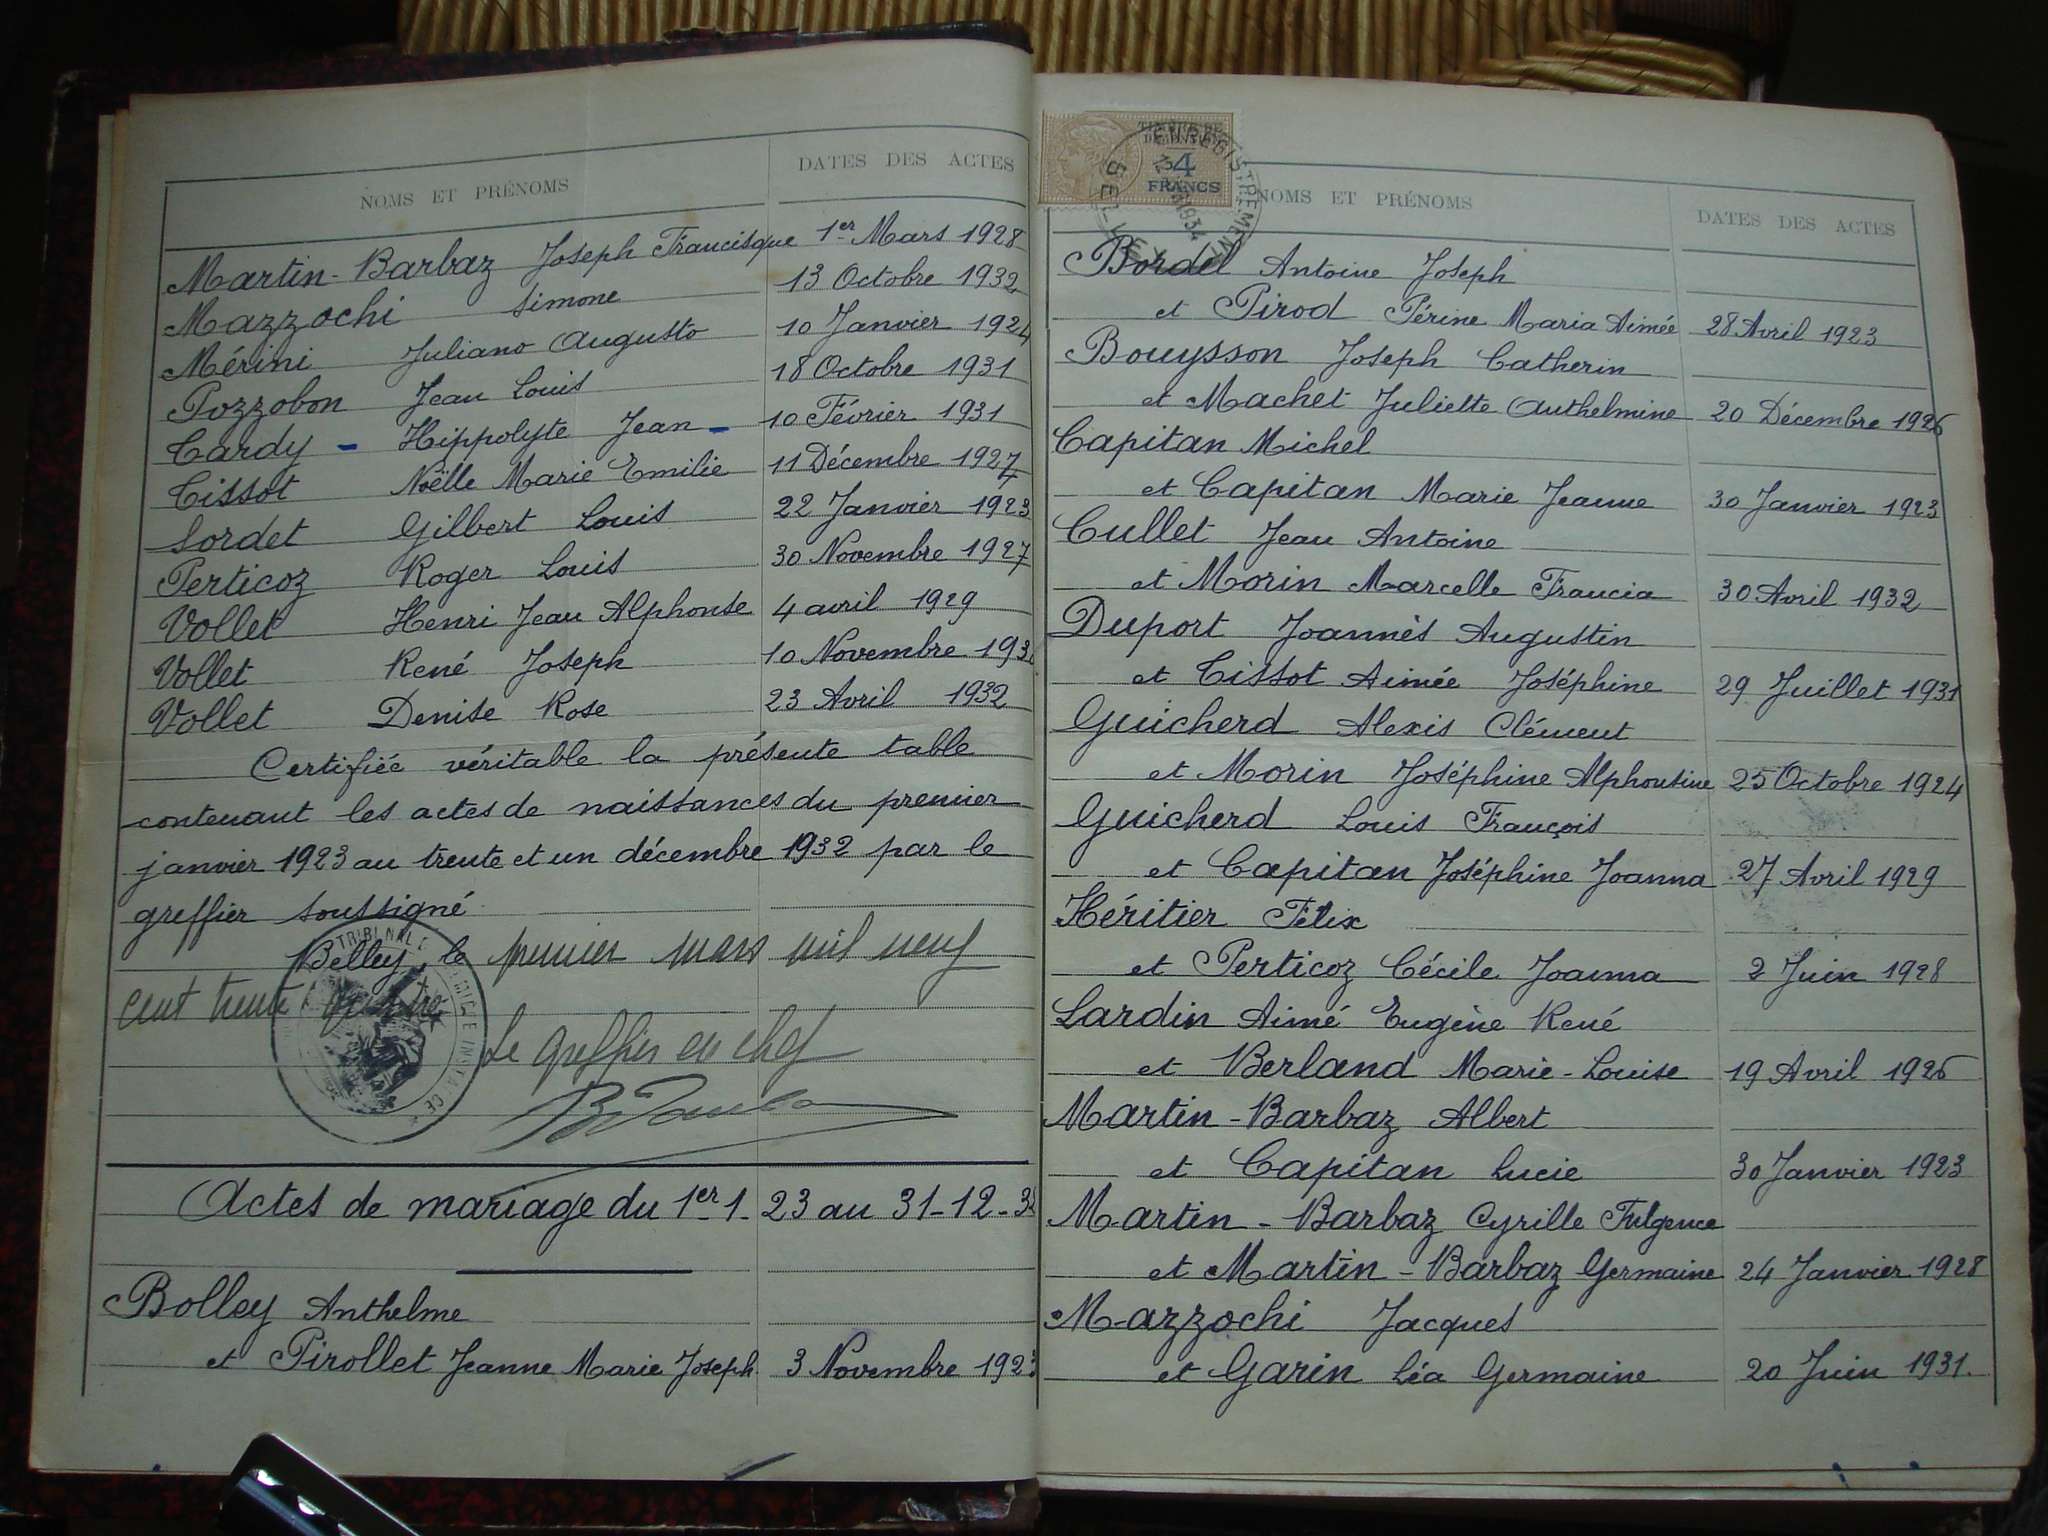 NOMS ET PRÉNOMS DATES DES ACTES
Martin-Barbaz Joseph Francisque 1er Mars 1928
Mazzochi Simone 13 Octobre 1932
Mérini Juliano Augusto 10 Janvier 1924
Pozzobon Jean Louis 18 Octobre 1931
Tardy - Hippolyte Jean - 10 Février 1931
Tissot Noëlle Marie Emilie 11 Décembre 1927
Sordet Gilbert Louis 22 Janvier 1923
Perticoz Roger Louis 30 Novembre 1927
Vollet Henri Jean Alphonse 4 avril 1929
Vollet René Joseph 10 Novembre
Vollet Denise Rose 23 Avril 1932
Certifiée véritable la présente table
contenant les actes de naissances du premier
janvier 1923 au trente et un décembre 1932 par le
greffier soussigné
Belley, le premier mars mil neuf
cent trente quatre
Le greffier en chef
Actes de mariage du 1er-1-23 au 31-12-32
Bolley Anthelme
et Pirollet Jeanne Marie Joseph. 3 Novembre 1923
TIMBRE DE DIMENSION
4 FRANCS
ENREGISTREMENT
BELLEY
1934
NOMS ET PRÉNOMS DATES DES ACTES
Bordel Antoine Joseph
et Pirod Périne Maria Aimée 28 Avril 1923
Bouysson Joseph Catherin
et Machet Juliette Anthelmine 20 Décembre 1926
Capitan Michel
et Capitan Marie Jeanne 30 Janvier 1923
Cullet Jean Antoine
et Morin Marcelle Francia 30 Avril 1932
Duport Joannès Augustin
et Tissot Aimée Joséphine 29 Juillet 1931
Guicherd Alexis Clément
et Morin Joséphine Alphonsine 25 Octobre 1924
Guicherd Louis François
et Capitan Joséphine Joanna 27 Avril 1929
Héritier Félix
et Perticoz Cécile Joanna 2 Juin 1928
Lardin Aimé Eugène René
et Berland Marie-Louise 19 Avril 1926
Martin-Barbaz Albert
et Capitan Lucie 30 Janvier 1923
Martin-Barbaz Cyrille Fulgence
et Martin-Barbaz Germaine 24 Janvier 1928
Mazzochi Jacques
et Garin Léa Germaine 20 Juin 1931.